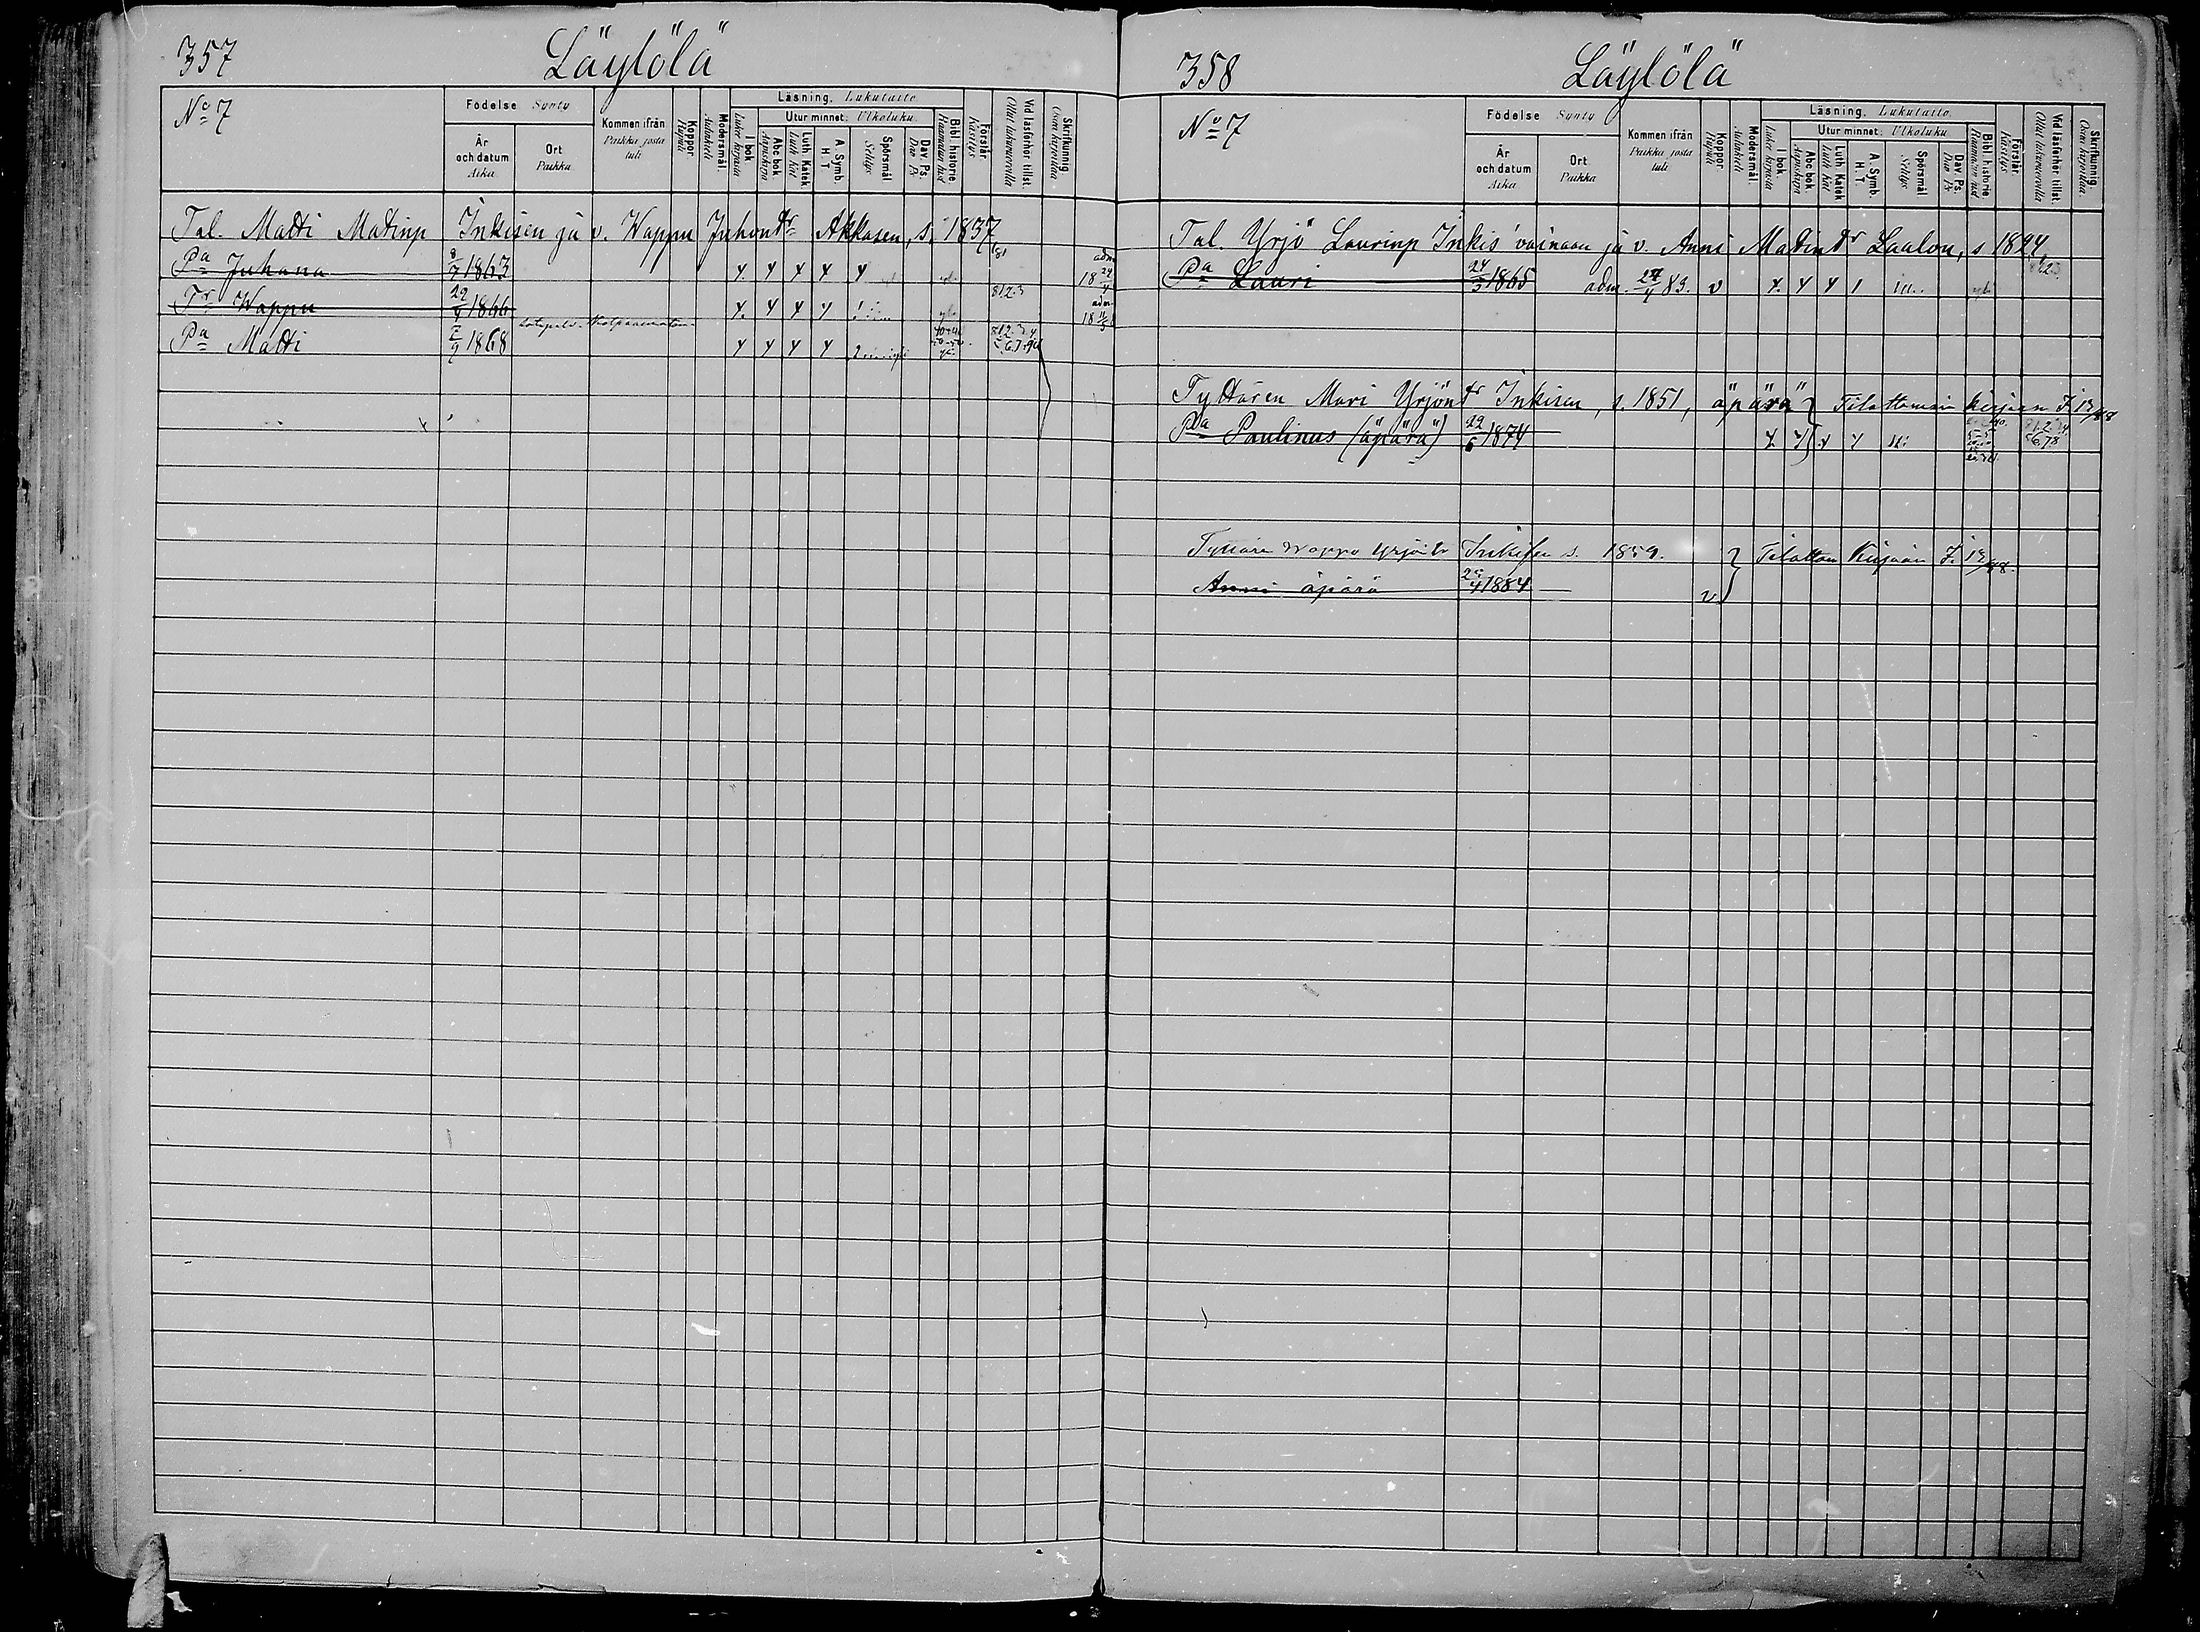 357 Läylölä
Nº 7
Födelse Synty
År och datum Aika
Ort Paikka
Kommen ifrån Paikka josta tuli
Koppor. Rupuli
Modersmål. Äidinkieli
Läsning. Lukutaito
I bok. Lukee kirjasta
Utur minnet. Ulkoluku
Abc bok. Aapiskirja
Luth. Katek. Luth. Kat.
A. Symb. H. T.
Spörsmål Selitys
Dav. Ps. Dav. Ps.
Bibl. historie.
Förstår Käsitys
Vid läsförhör tillst. Ollut lukuvuorolla
Skrifkunnig. Osaa kirjoittaa
Tal. Matti Matinp Inkisen ja v. Wappu Juhontr Akkasen, s. 1837
Pa Juhana 8/7 1863
Tr Wappu 22/4 1866 8123
Pa Matti 2/9 1868
358 Läylölä
Nº 7
Födelse Synty
År och datum Aika
Ort Paikka
Kommen ifrån Paikka josta tuli
Koppor. Rupuli
Modersmål. Äidinkieli
Läsning. Lukutaito
I bok. Lukee kirjasta
Utur minnet. Ulkoluku
Abc bok. Aapiskirja
Luth. Katek Luth. Kat
A. Symb. H. T.
Spörsmål Selitys
Dav. Ps. Dav. Ps
Bibl. historie.
Förstår Käsitys
Vid läsförhör tillst. Ollut lukuvuorolla
Skrifkunnig. Osaa kirjoittaa
Tal. Yrjö Laurinp Inkis' vainaan ja v. Anni Matintr Laalon, s 1824,
Pa Lauri 24/3 1865 adm. 24/4 83. v
Tyttären Mari Yrjöntr Inkisen, s. 1851, äpärä Tilattomain kirjaan I. 12/88
Pa Paulinus (äpärä) 22/6 1874
Tyttären Wappu Yrjöntr Inkisen s. 1859. Tilattom Kirjaan I. 12/88.
Anni äpärä 1884 v